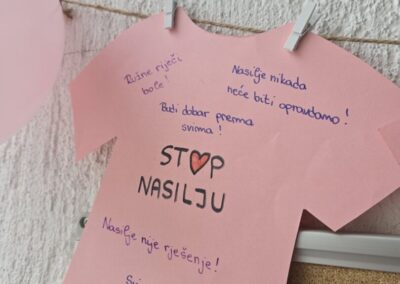 Ružne riječi
bole!
Nasilje nikada
neće biti opravdamo!
Budi dobar prema
svima!
STOP
NASILJU
Nasilje nije rješenje!